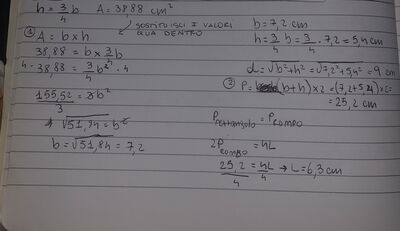 h = 3/4 b   A = 38,88 cm²
① A = b x h
SOSTITUISCI I VALORI
QUA DENTRO
38,88 = b x 3/4 b
4 · 38,88 = 3/4 b² · 4
155,52/3 = 3b²
√51,84 = b²
b = √51,84 = 7,2
b = 7,2 cm
h = 3/4 b = 3/4 · 7,2 = 5,4 cm
d = √b²+h² = √7,2²+5,4² = 9 cm
② P = (b+h) x 2 = (7,2+5,4) x 2 =
= 25,2 cm
P RETTANGOLO = P ROMBO
2P ROMBO = 4L
25,2/4 = 4L/4 → L = 6,3 cm